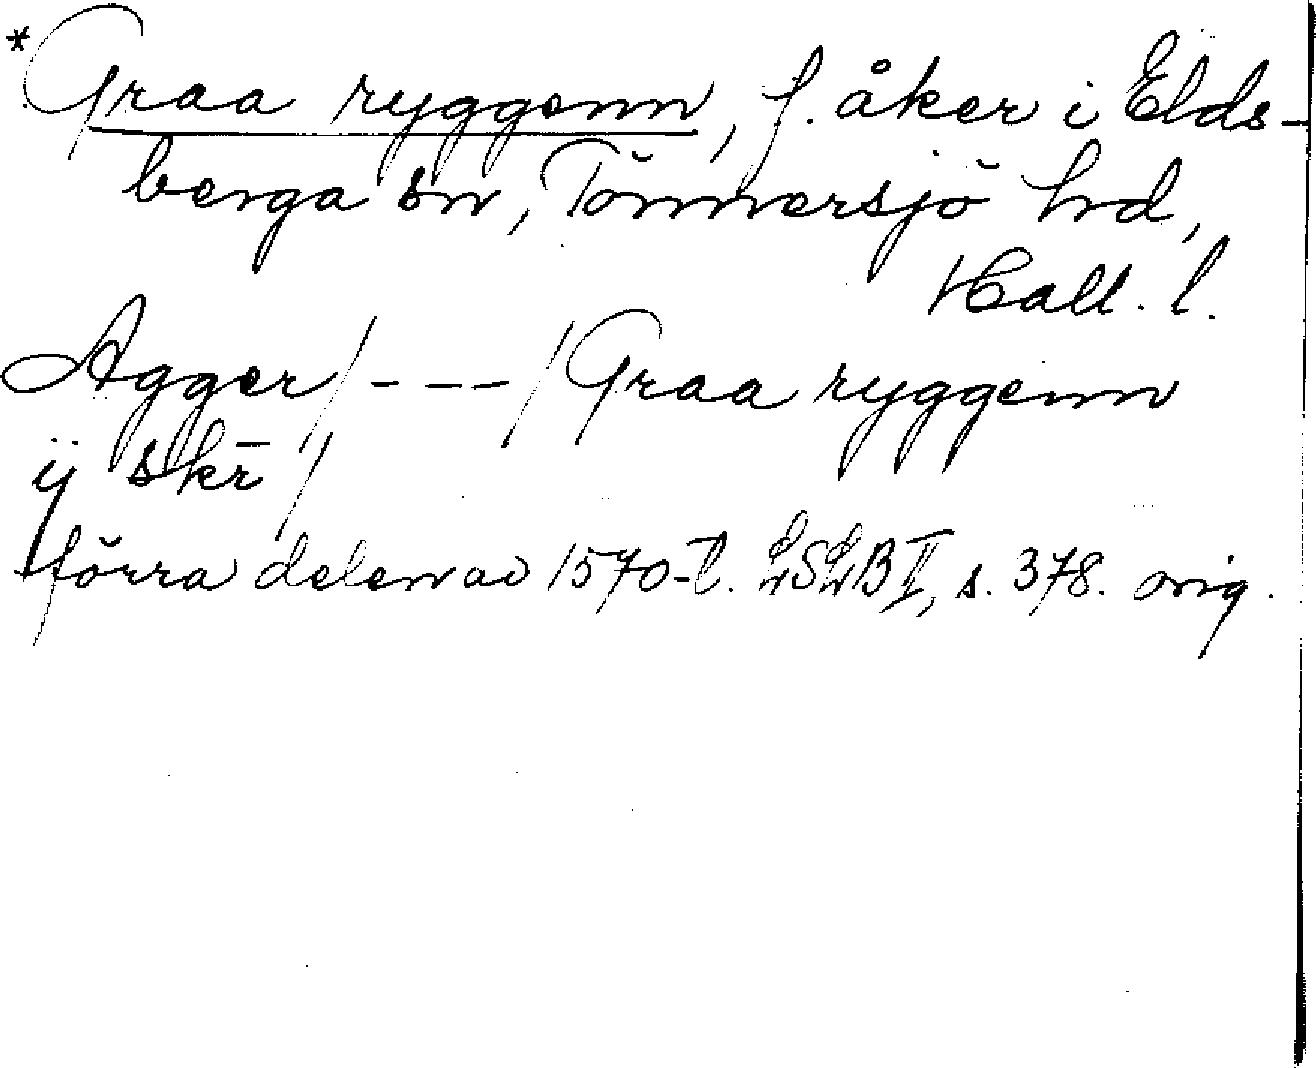 *Graa ryggenn, f. åker i Elds-
berga sn, Tönnersjö hrd,
Hall. l.
Agger/---/Graa ryggenn
ij skr̄/
förra delen av 1570-t. LSLB II, s. 378. orig.